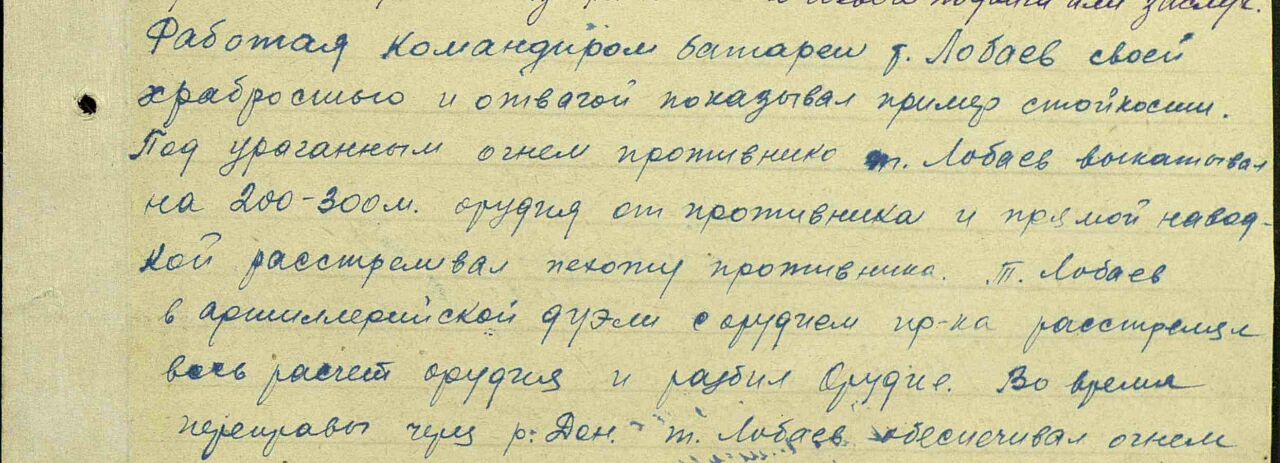 подвига или заслуг.
Работая командиром батареи т. Лобаев своей
храбростью и отвагой показывал пример стойкости.
Под ураганным огнем противника т. Лобаев выкатывал
на 200-300м. орудия от противника и прямой навод-
кой расстреливал пехоту противника. Т. Лобаев
в артиллерийской дуэли с орудием пр-ка расстрелял
весь расчет орудия и разбил Орудие. Во время
переправы через р. Дон. т. Лобаев обеспечивал огнем